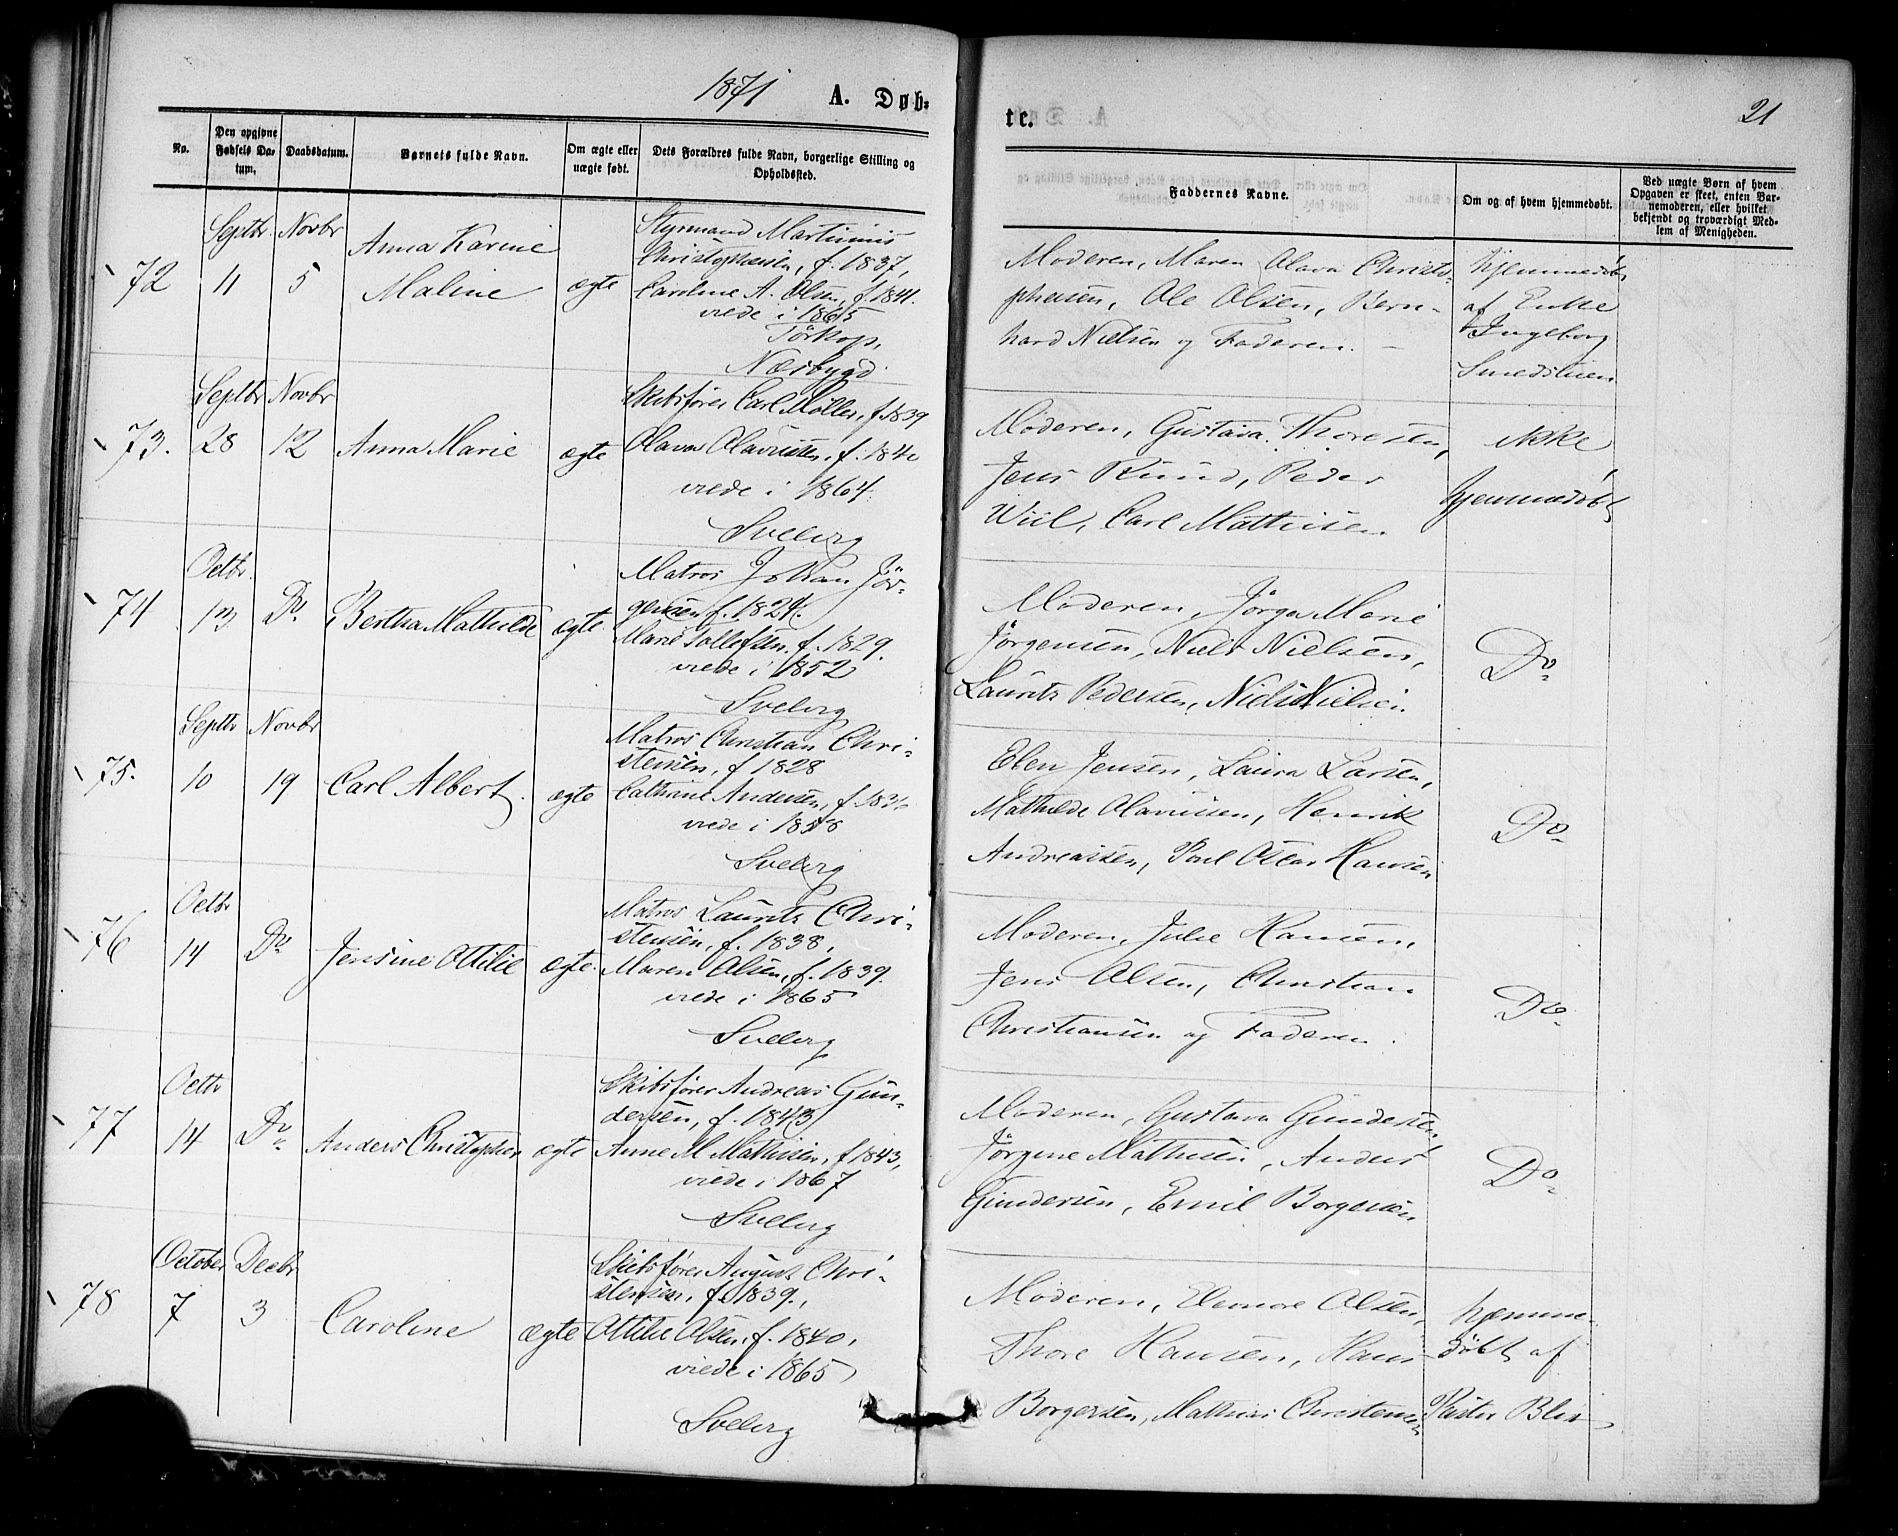 1871
A. Døb-
No.
Den opgivne
Fødsels Da-
tum.
Daabsdatum.
Barnets fulde Navn.
Om ægte eller
uægte født.
Dets Forældres fulde Navn, borgerlige Stilling og
Opholdssted.
72
Septbr
11
Novbr
5
Anna Karine
Maline
ægte
Styrmand Martinius
Christophersen, f. 1837,
Caroline A. Olsen, f. 1841.
viede i 1865
Törkop,
Næsbygd
73.
Septbr
28
Novbr
12
Anna Marie
ægte
Skibsfører Carl Møller, f. 1839
Olava Olavesen, f. 184
viede i 1864.
Svelvig
74
Octbr.
13
Do.
Bertha Mathilde
ægte.
Matros Johan Jör-
gensen f. 1824.
Marie Tollefsen. f. 1829.
viede i 1852
Svelvig
75.
Septbr
10
Novbr
19
Carl Albert.
ægte
Matros Christian Chri-
stensen, f. 1828
Cathrine Andersen, f. 183
viede i 1858
Svelvig
76
Octbr
14
Do
Jensine Ottilie
ægte.
Matros Laurits Chri-
stensen, f. 1838,
Maren Olsen, f. 1839.
viede i 1865
Svelvig
77
Octbr
14
Do.
Anders Christopher
ægte
Skibsfører Andreas Gun-
dersen, f. 1843
Anne M. Mathisen, f 1843,
viede i 1867
Svelvig
78
October
7
Decbr
3
Caroline
ægte
Skibsfører August Chri-
stensen, f. 1839.,
Ottilie Olsen, f. 1840,
viede i 1865
Svelvig
te.
21
Faddernes Navne.
Om og af hvem hjemmedøbt.
Ved uægte Børn af hvem
Opgaven er skeet, enten Bar-
nemoderen, eller hvilket
bekjendt og troværdigt Med-
lem af Menigheden.
Moderen, Maren Olava Christo-
phersen, Ole Olsen, Bern-
hard Nielsen og Faderen. -
hjemmedøbt
af Enke
Ingeborg
Smedsluen
Moderen, Gustava Thoresen,
Jens Ruud, Peder
Wiil, Carl Mathisen.
Ikke
hjemmedøbt
Moderen, Jörga Marie
Jörgensen, Niels Nielsen,
Laurits Pedersen, Niels Nielsen.
Do.
Elen Jensen, Laura Larsen,
Mathilde Olavesen, Henrik
Andreassen, Poul Oscar Hansen
Do.
Moderen, Julie Hansen,
Jens Olsen, Christian
Christiansen og Faderen.
Do.
Moderen, Gustava Gundersen
Jörgine Mathisen, Anders
Gundersen, Emil Borgersen
Do.
Moderen, Elenore Olsen,
Thore Hansen, Hans
Borgersen, Mathias Christensen
hjemme-
døbt af
Pastor Blix